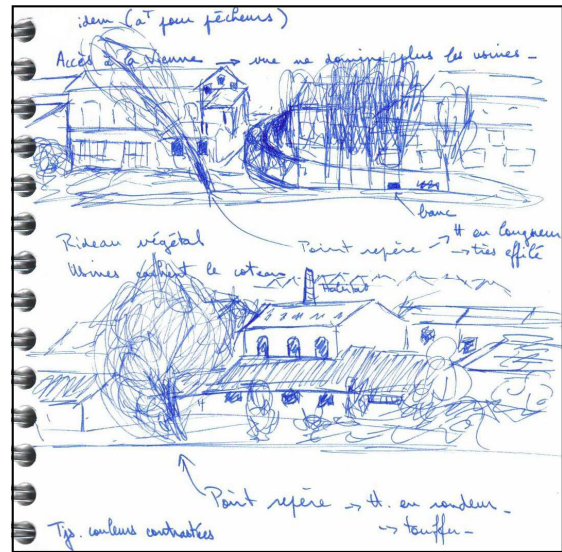 idem (aT pour pêcheurs)
Accès à la Vienne → vue ne domine plus les usines -
banc
Rideau végétal
Point repère → tt en longueur
→ très effilé
Usines cachent le coteau
Habitat
Point repère → tt. en rondeur -
→ touffu -
Tjs. couleurs contrastées